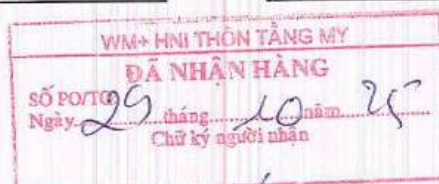 WM+ HNI THÔN TẰNG MY
ĐÃ NHẬN HÀNG
SỐ PO/TO
Ngày 29 tháng 10 năm 25
Chữ ký người nhận